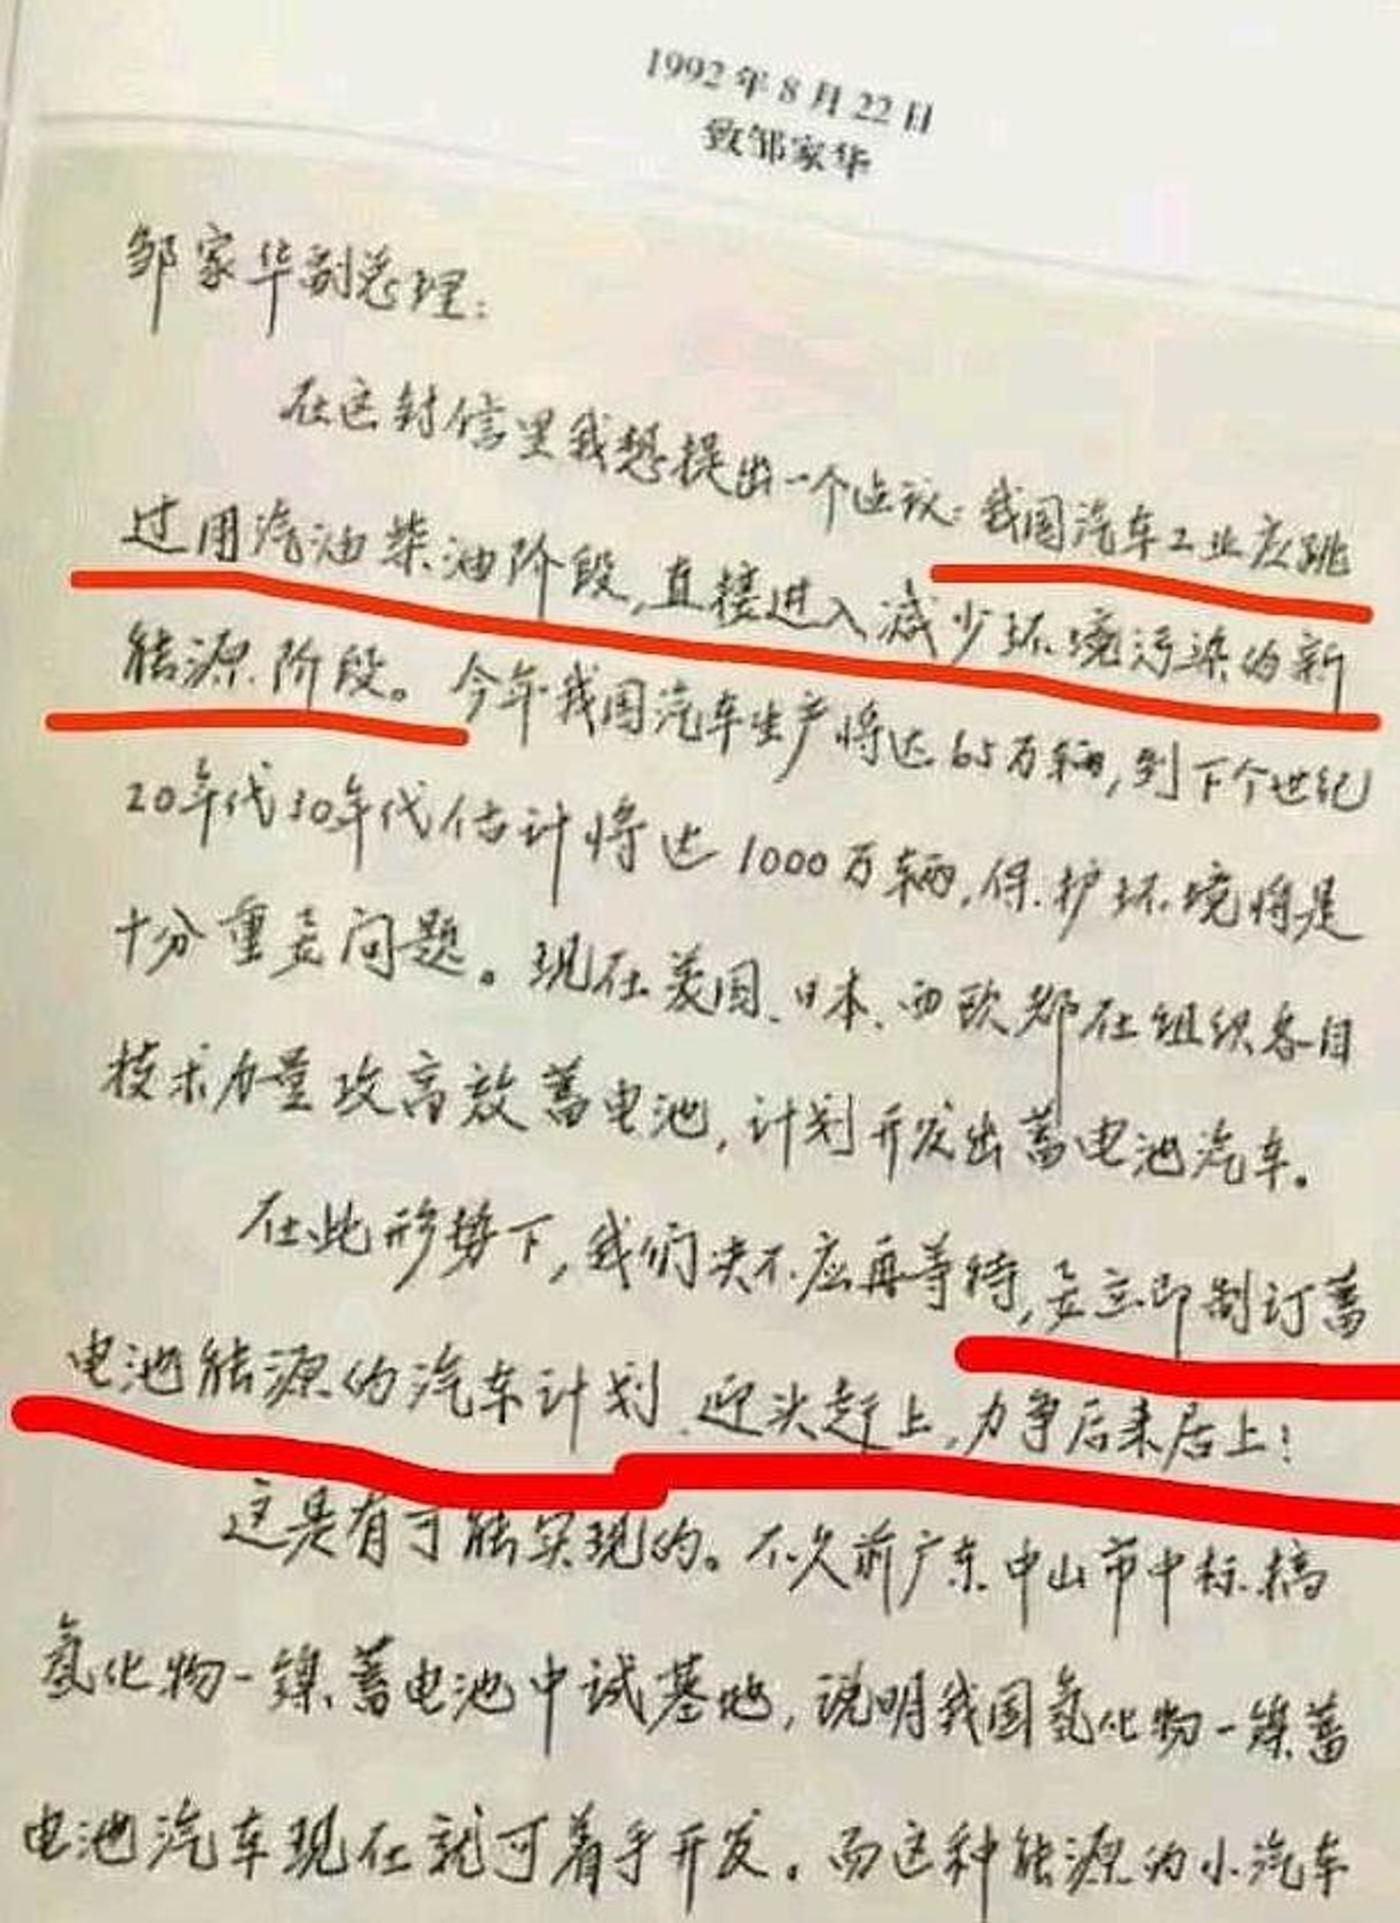 1992年8月22日
致邹家华
邹家华副总理：
在这封信里我想提出一个建议：我国汽车工业应跳
过用汽油柴油阶段，直接进入减少环境污染的新
能源阶段。今年我国汽车生产将达65万辆，到下个世纪
20年代30年代估计将达1000万辆，保护环境将是
十分重要问题。现在美国、日本、西欧都在组织各自
技术力量攻高效蓄电池，计划开发出蓄电池汽车。
在此形势下，我们决不应再等待，要立即制订蓄
电池能源的汽车计划、迎头赶上，力争后来居上！
这是有可能实现的。不久前广东中山市中标搞
氢化物-镍蓄电池中试基地，说明我国氢化物-镍蓄
电池汽车现在就可着手开发。而这种能源的小汽车